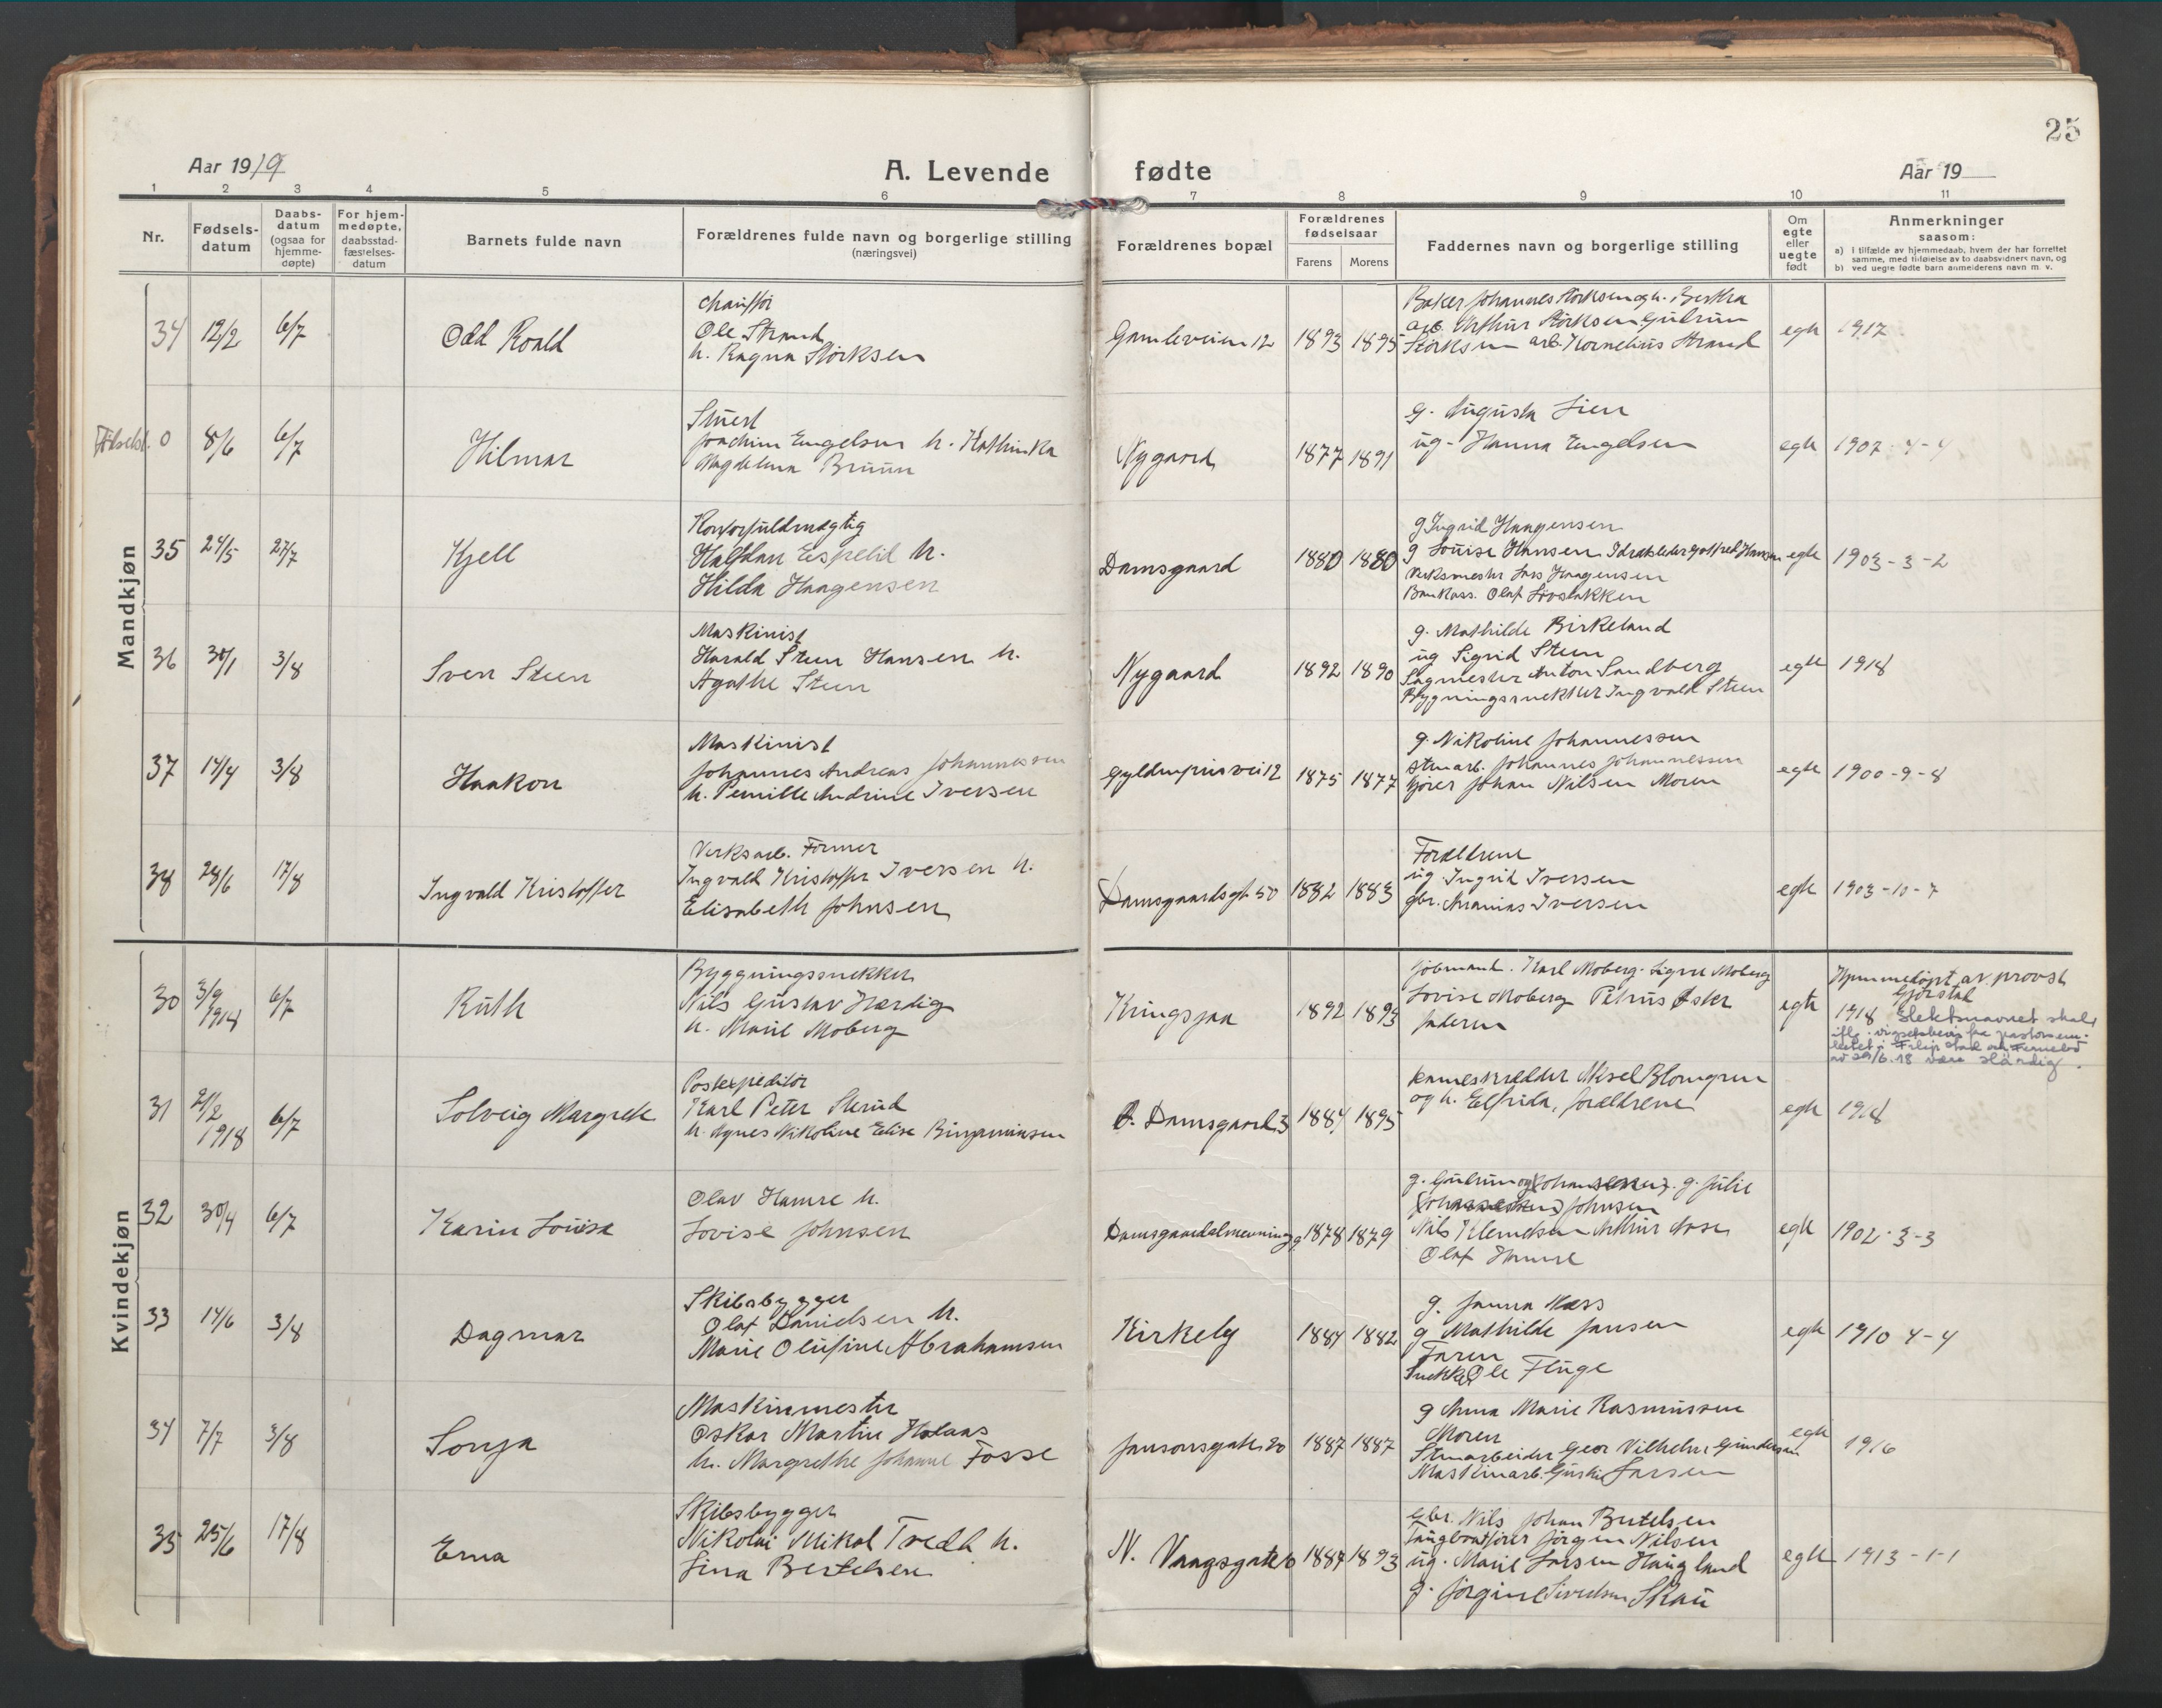 25
Aar 1919
A. Levende fødte
Aar 19
1 2 3 4 5 6 7 8 9 10 11
Nr.
Fødsels-
datum
Daabs-
datum
(ogsaa for
hjemme-
døpte)
For hjem-
medøpte,
daabsstad-
fæstelses-
datum
Barnets fulde navn
Forældrenes fulde navn og borgerlige stilling
(næringsvei)
Forældrenes bopæl
Forældrenes
fødselsaar
Farens Morens
Faddernes navn og borgerlige stilling
Om
egte
eller
uegte
født
Anmerkninger
saasom:
a) i tilfælde av hjemmedaab, hvem der har forrettet
samme, med tilføielse av to daabsvidners navn, og
b) ved uegte fødte barn anmelderens navn m. v.
Mandkjøn
34 12/2 6/7 Odd Roald
Chauffør
Ole Strand
h. Ragna Størksen
Gamleveien 12 1893 1895
Baker Johannes Størksen og h. Bertha
arb. Arthur Størksen Gudrun
Størksen arb. Kornelius Strand
egte 1917
0 8/6 6/7 Hilmar
Stuert
Joachim Engelsen h. Kathinka
Magdalena Bruun
Nygaard 1877 1891
g. Augusta Lien
ug. Hanna Engelsen
egte 1907-4-4
35 24/5 27/7 Kjell
Kontorfuldmægtig
Halfdan Espelid h.
Hilda Haagensen
Damsgaard 1880 1880
g Ingrid Haagensen
g Louise Hansen Idrætsleder Gotfred Hansen
Verksmester Lars Haagensen
Bankass. Olaf
egte 1903-3-2
36 30/1 3/8 Sven Steen
Maskinist
Harald Steen Hansen h.
Agathe Steen
Nygaard 1892 1890
g. Mathilde Birkeland
ug Sigrid Steen
Sagmester Anton Sandberg
Bygningssnekker Ingvald Steen
egte 1918
37 14/4 3/8 Haakon
Maskinist
Johannes Andreas Johannessen
h. Pernille Andrine Iversen
Gyldenprisvei 12 1875 1877
g. Nikoline Johannessen
stuarb. Johannes Johannessen
kjører Johan Nilsen Moren
egte 1900-9-8
38 28/6 17/8 Ingvald Kristoffer
Verksarb. Former
Ingvald Kristoffer Iversen h.
Elisabeth Johnsen
Damsgaardsgt 50 1882 1883
Forældrene
ug. Ingrid Iversen
gbr. Ananias Iversen
egte 1903-10-7
Kvindekjøn
30 3/9 1918 6/7 Ruth
Byggningssnekker
Nils Gustav Hærdig
h. Marie Moberg
Kringsjaa 1892 1893
Jobmand. Karl Moberg. Signe Moberg
Lovise Moberg Petrus Øster
faderen
egte
Hjemmedøpt av provst
Gjørstad
1918 Slektsnavnet skal
iflg. vigselsbevis fra pastorsem-
betet i Filipstad och Fernebo
av 29/6.18 være Härdig.
31 21/2 1918 6/7 Solveig Margrete
Postexpeditør
Karl Peter Skrud
h. Agnes Nikoline Elise Binjaminsen
Ø. Damsgaard 3 1884 1895
Dameskrædder Aksel Blomgren
og h. Elfrida, forældrene
egte 1918
32 30/4 6/7 Karin Louise
Olav Hamre h.
Lovise Johnsen
Damsgaardalmenning 9 1878 1879
g. Gudrun og g. Julie
Johnsen
Nils Klemetsen Arthur Aase
Olaf Hamre
egte 1902-3-3
33 14/6 3/8 Dagmar
Skibsbygger
Olaf Danielsen h.
Marie Olufine Abrahamsen
Kirkely 1884 1882
g. Janna Næss
g Mathilde Jansen
Faren
Snekker Ole Fluge
egte 1910 4-4
34 7/7 3/8 Sonja
Maskinmester
Oskar Martin Holaas
h. Margrethe Johanne Fosse
Jansonsgate 20 1887 1887
g Anna Marie Rasmussen
Moren
Stuarbeider Geor Vilhelm Gundersen
Maskinarb. Larsen
egte 1916
35 25/6 17/8 Erna
Skibsbygger
Nikolai Mikal Tvedt h.
Lina Bertelsen
N. Vaagsgate 6 1887 1893
Gbr. Nils Johan Bertelsen
Taugbaatfører Jørgen Nilsen
ug. Marie Larsen Haugland
g. Jørgine Sivertsen Skau
egte 1913-1-1